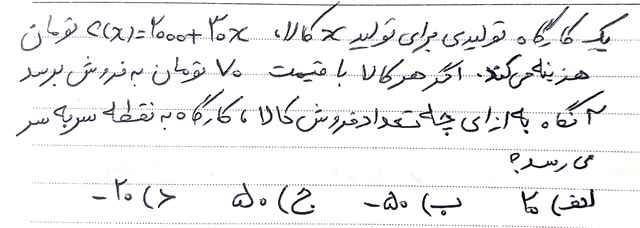 یک کارگاه تولیدی برای تولید x کالا، C(x)=2000+30x تومان
هزینه می‌کند. اگر هر کالا با قیمت ۷۰ تومان به فروش برسد
آنگاه به ازای چه تعداد فروش کالا، کارگاه به نقطه سر به سر
می رسد؟
الف) ۲۰ ب) ۵۰- ج) ۵۰ د) ۲۰-